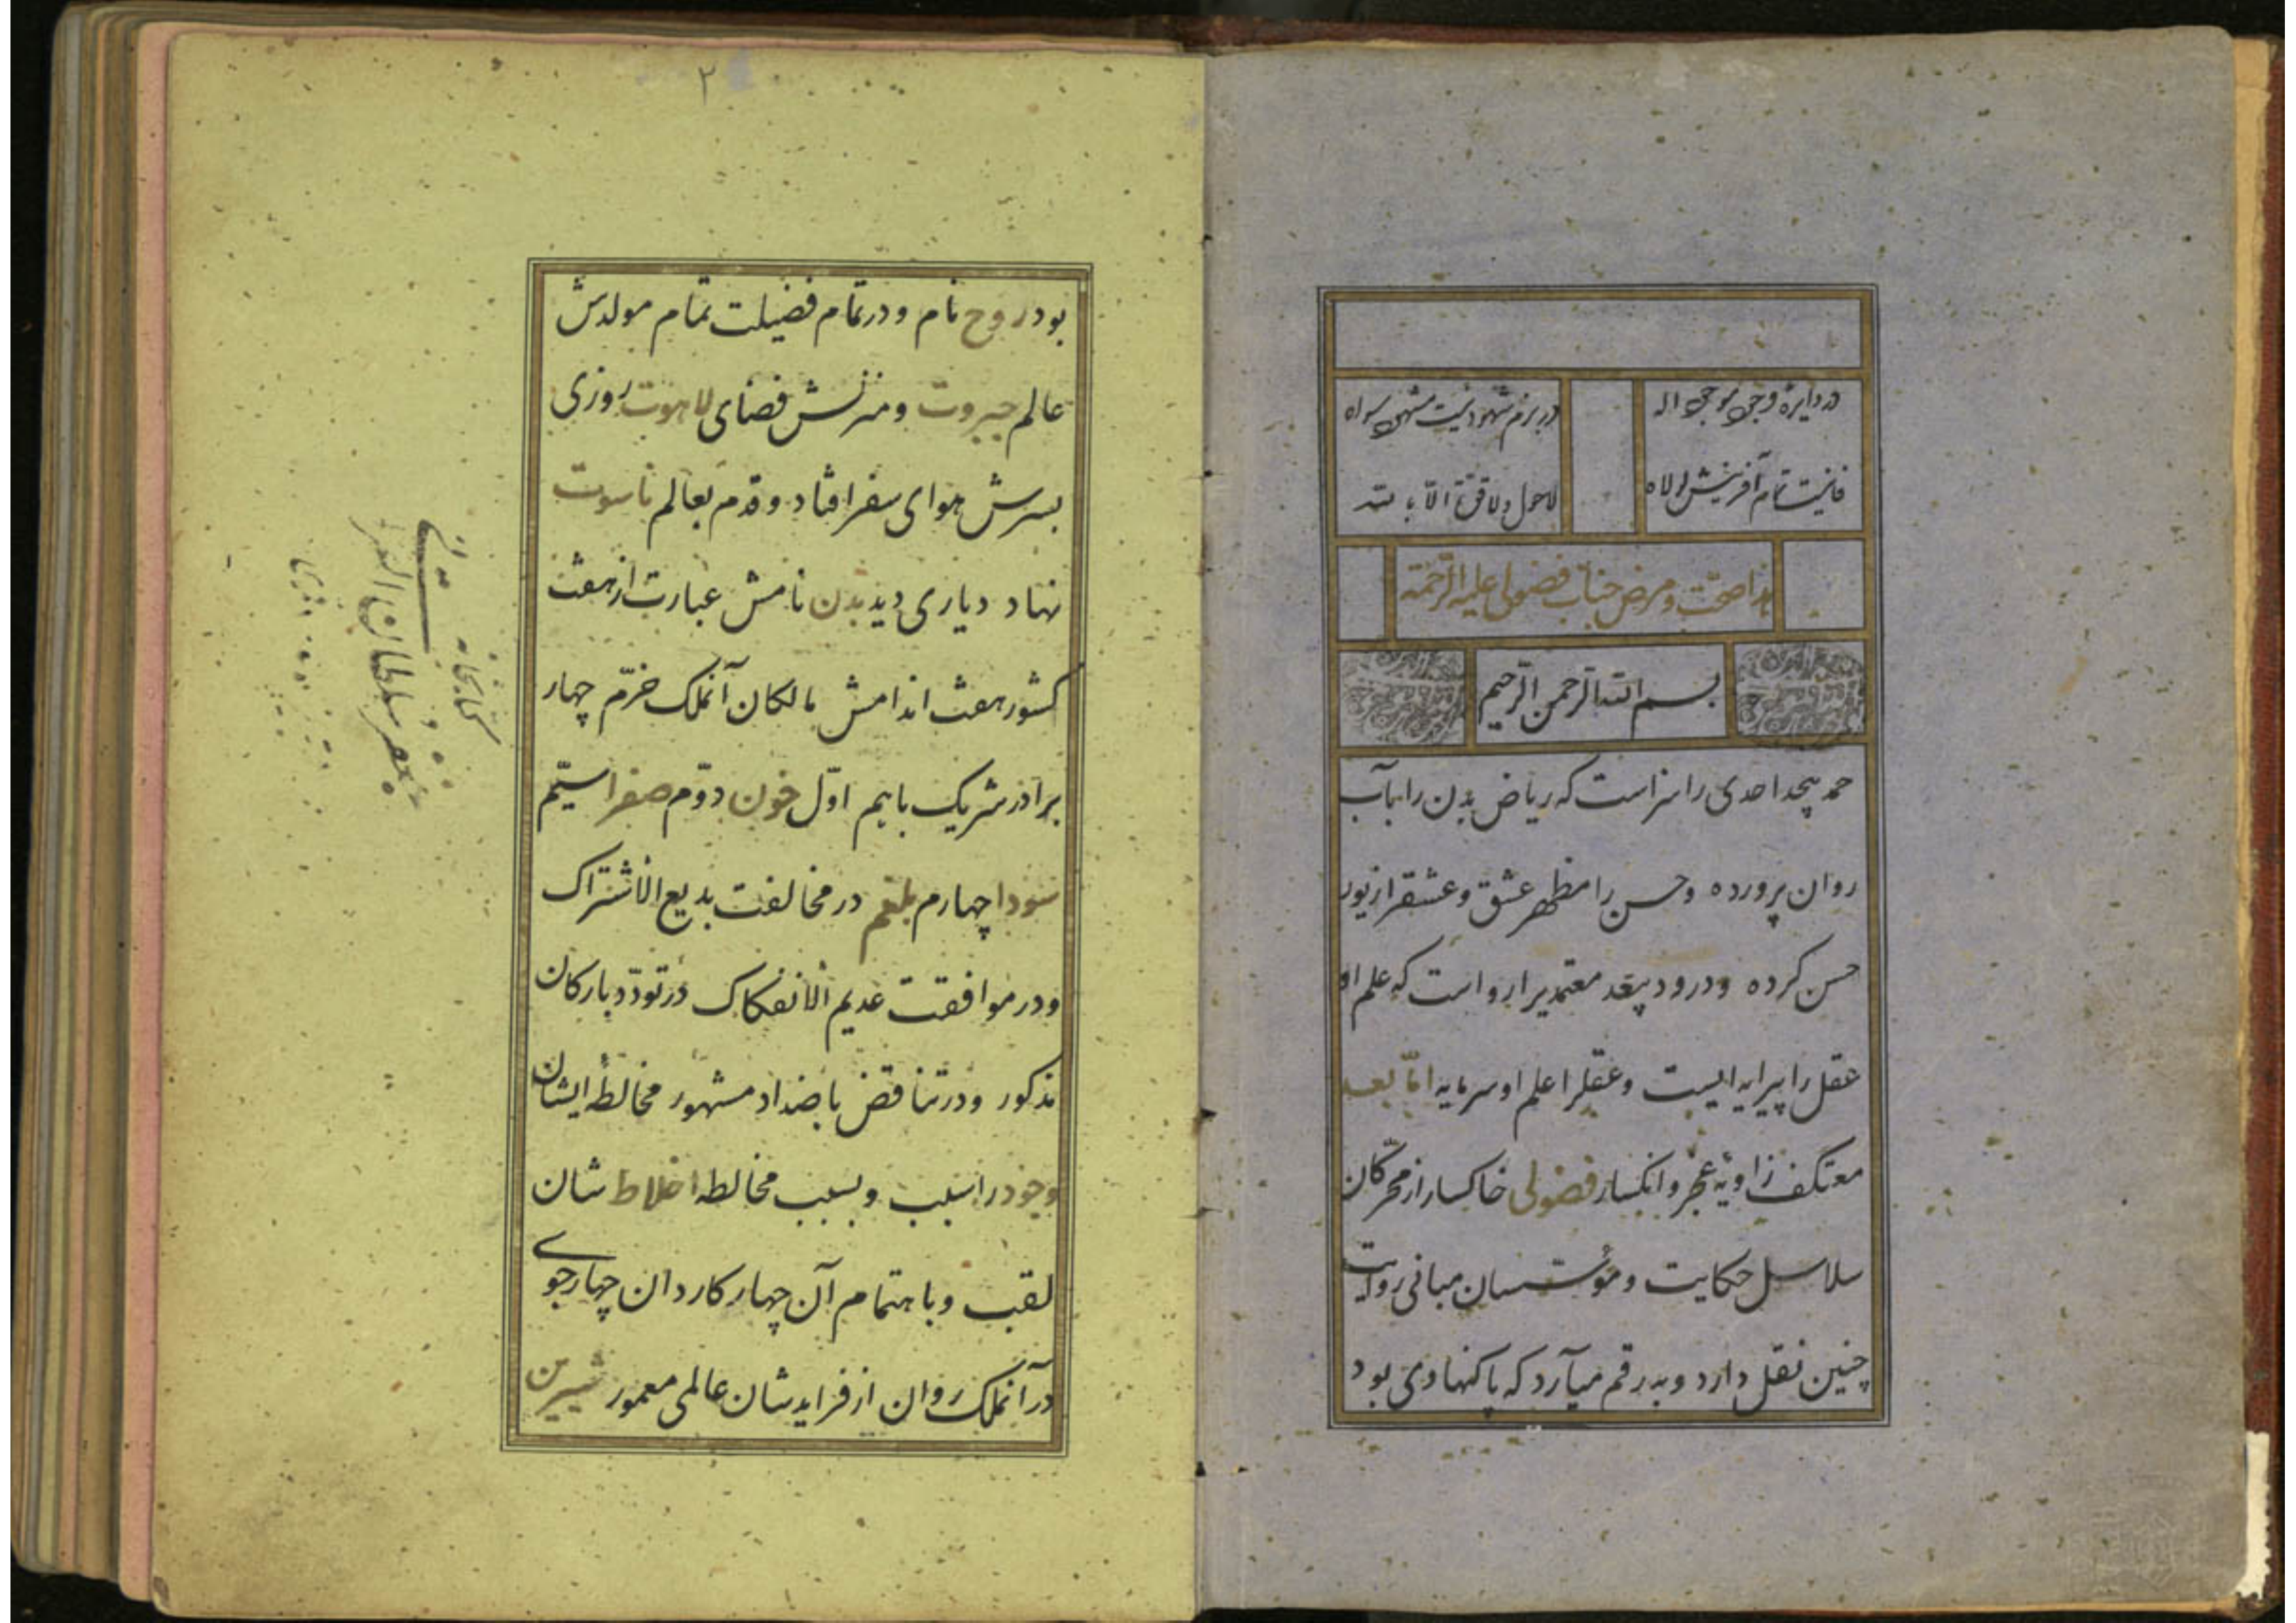 در دایره وحی موحی اله
در بزم شهود نیست مشهی سواه
فانیست تمام آفرینش لولاه
لاحول ولا قوّة الّا بالله
هذا صحّت و مرض جناب فضولی علیه الرّحمة
بسم الله الرّحمن الرّحیم
حمد بیحد احدی را سزاست که ریاض بدن را بآب
روان پرورده وحسن را مظهر عشق وعشقرا زیور
حسن کرده ودرود بیعد معتمدیرا رواست که علم او
عقل را پیرایه ایست وعقلرا علم او سرمایه امّا بعد
معتکف زاویهٔ عجز وانکسار فضولی خاکسار از محرّکان
سلاسل حکایت ومؤسسان مبانی روایت
چنین نقل دارد وبه رقم میآرد که پاکنهادی بود
۲
بود روح نام ودر تمام فضیلت تمام مولدش
عالم جبروت ومنزلش فضای لاهوت روزی
بسرش هوای سفر افتاد وقدم بعالم ناسوت
نهاد دیاری دید بدن نامش عبارت از هفت
کشور هفت اندامش مالکان آنملک خرّم چهار
برادر شریک باهم اوّل خون دوّم صفرا سیّم
سودا چهارم بلغم در مخالفت بدیع الاشتراک
ودر موافقت عدیم الانفکاک در تودّد بارکان
مذکور ودر تناقض باضداد مشهور مخالطهٔ ایشان
وجود را سبب وبسبب مخالطه اخلاط شان
لقب وباهتمام آن چهار کاردان چهار جوی
در آنملک روان از فرایدشان عالمی معمور شیرین
کتابخانه